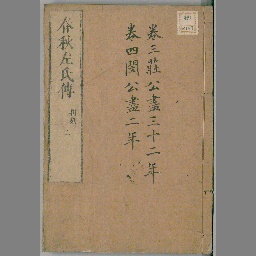 卷三莊公盡三十二年
卷四閔公盡二年
春秋左氏傳